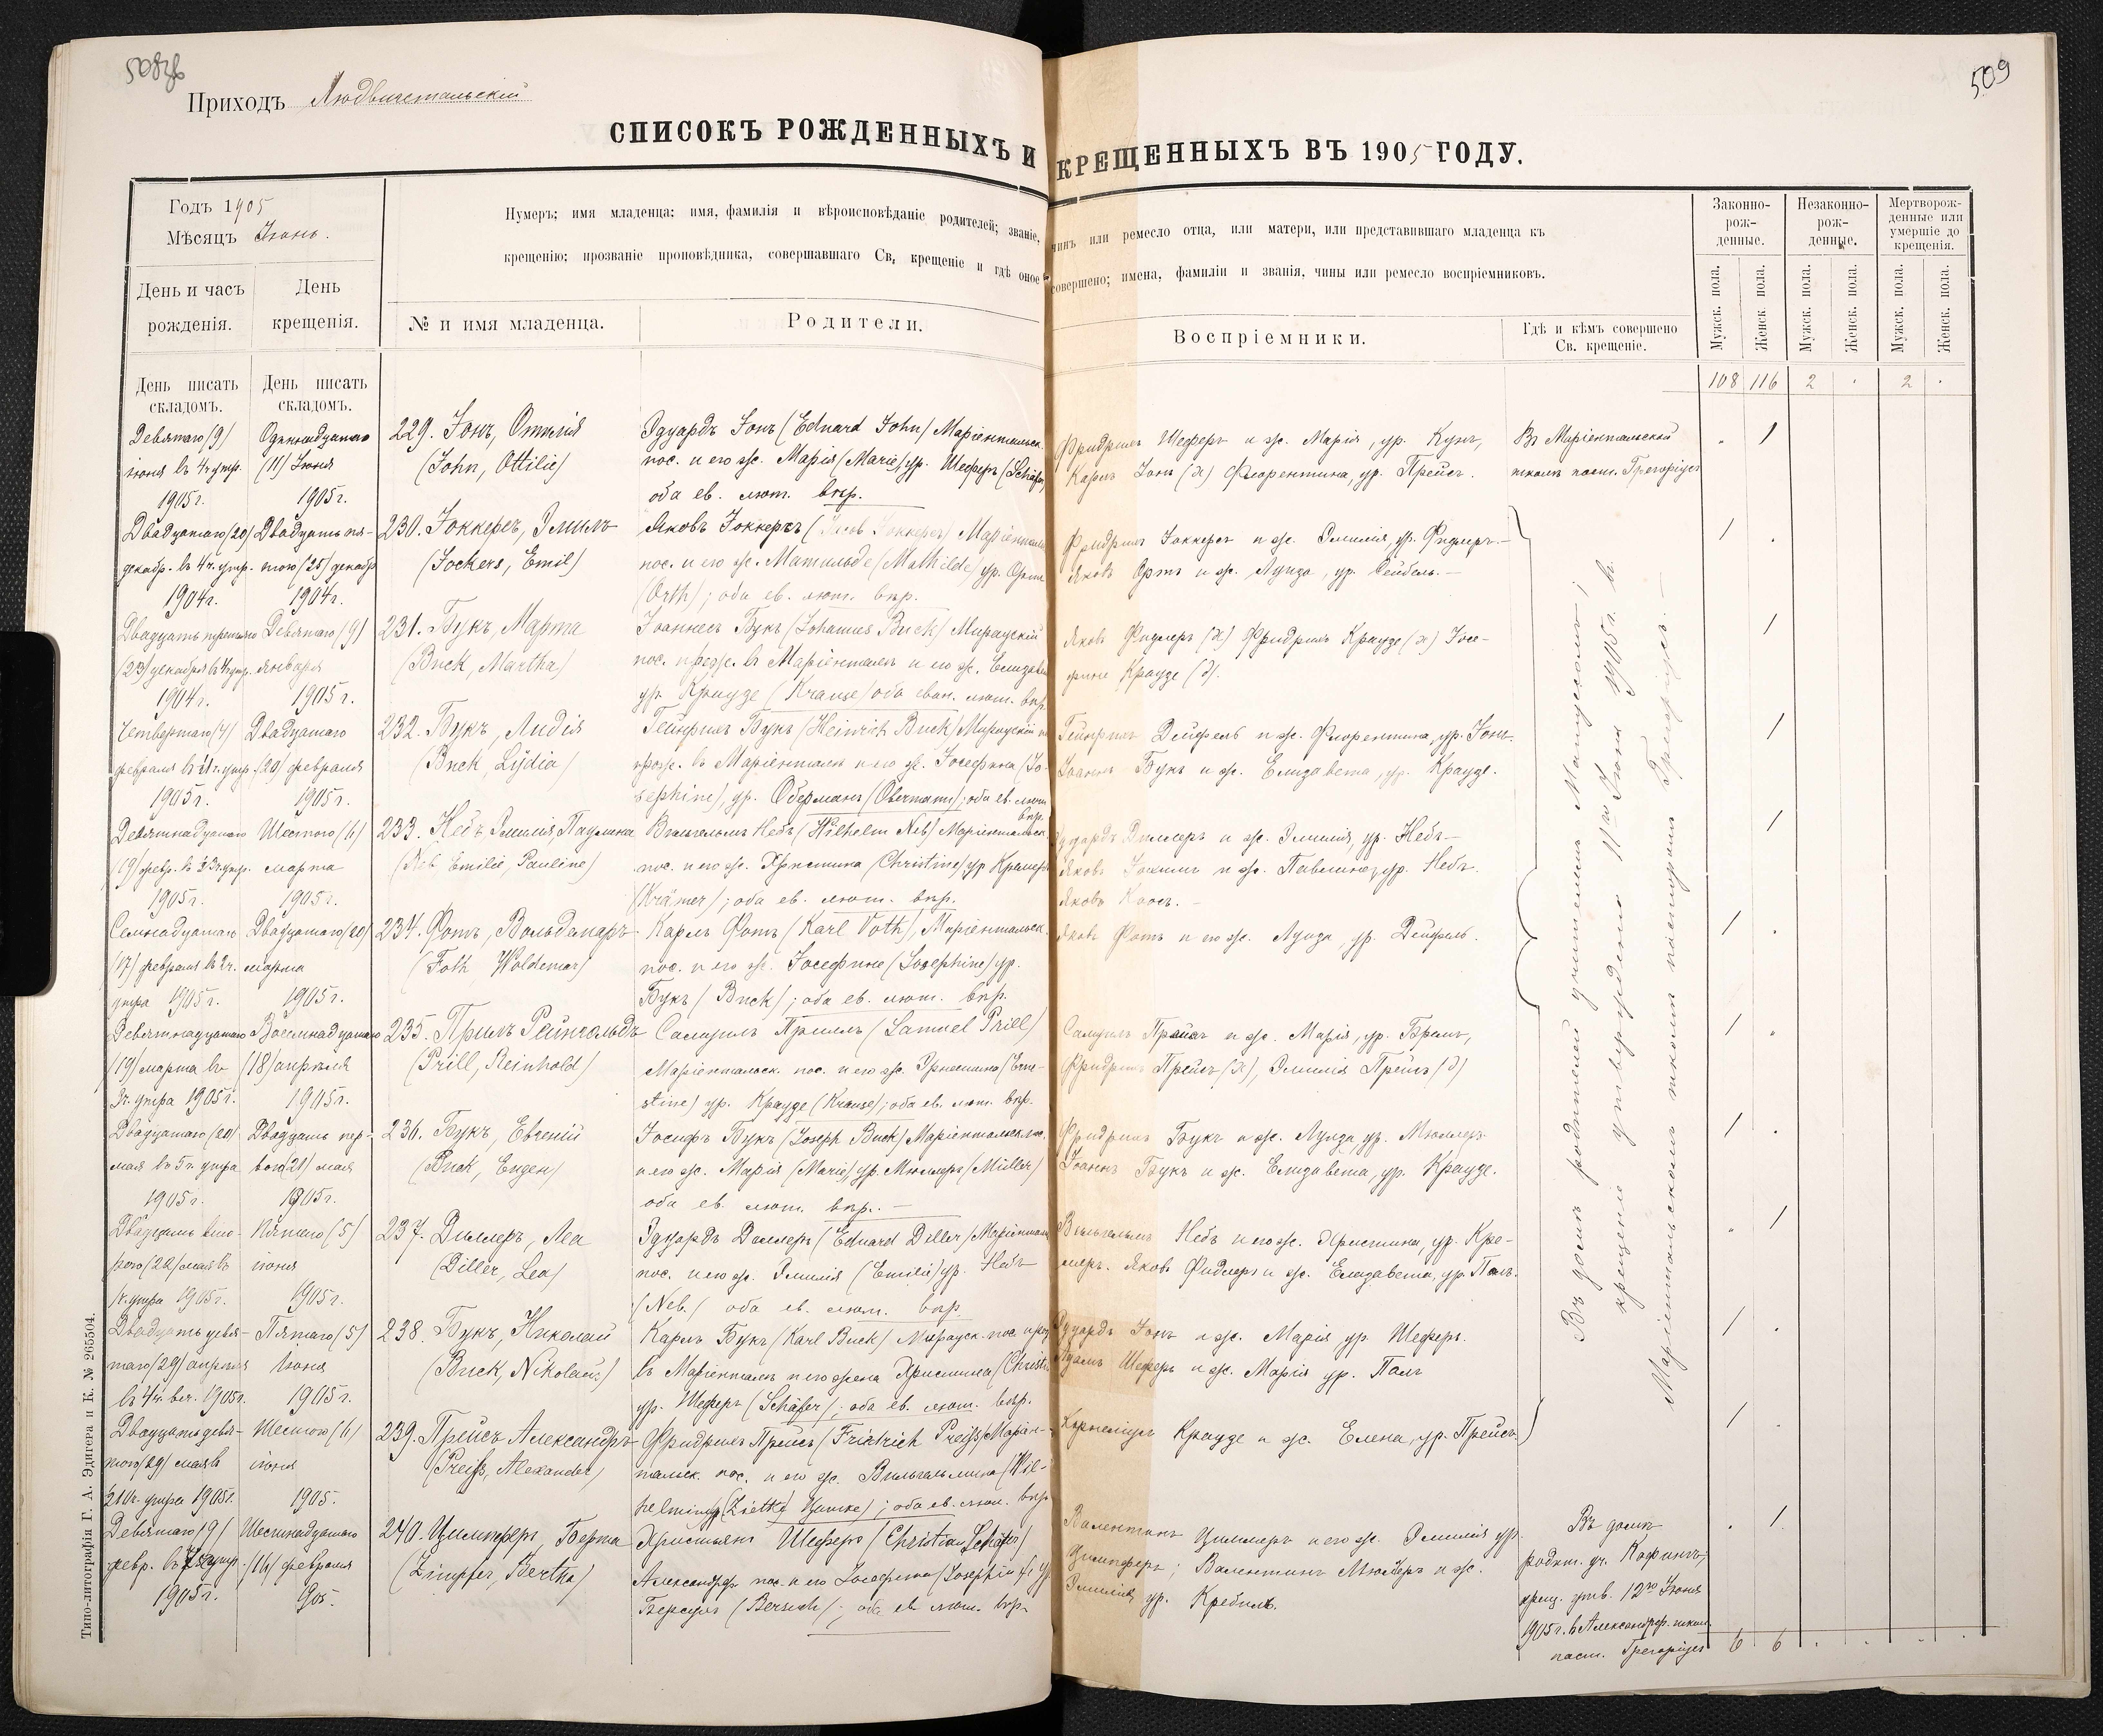 508об
509
Приходъ Людвигстальскій
СПИСОКЪ РОЖДЕННЫХЪ И КРЕЩЕННЫХЪ ВЪ 1905 ГОДУ.
Годъ 1905
Мѣсяцъ Іюнь.
Нумеръ; имя младенца; имя, фамилія и вѣроисповѣданіе родителей; званіе, чинъ или ремесло отца, или матери, или представившаго младенца къ
крещенію; прозваніе проповѣдника, совершавшаго Св. крещеніе и гдѣ оное совершено; имена, фамиліи и званія, чины или ремесло воспріемниковъ.
День и часъ рожденія.
День крещенія.
№ и имя младенца.
Родители.
Воспріемники.
Гдѣ и кѣмъ совершено
Св. крещеніе.
Законно-
рож-
денные.
Незаконно-
рож-
денные.
Мертворож-
денные или
умершіе до
крещенія.
Мужск. пола.
Женск. пола.
Мужск. пола.
Женск. пола.
Мужск. пола.
Женск. пола.
День писать
складомъ.
День писать
складомъ.
108 116 2 . 2 .
Девятаго (9)
іюня въ 4 ч. утр.
1905 г.
Одиннадцатаго
(11) Іюня
1905 г.
229. Іонъ, Оттилія
(John, Ottilie)
Эдуардъ Іонъ (Eduard John) Маріентальск.
пос. и его ж. Марія (Marie) ур. Шеферъ (Schäfer)
оба ев. лют. вѣр.
Фридрихъ Шеферъ и ж. Марія, ур. Кунъ,
Карлъ Іонъ (х) Флорентина, ур. Прейсъ.
Въ Маріентальской
школѣ паст. Грегоріусъ
. 1
Двадцатаго (20)
декабр. въ 4 ч. утр.
1904 г.
Двадцать пя-
того (25) декабр
1904 г.
230. Іоккерсъ, Эмиль
(Jockers, Emil)
Яковъ Іоккерсъ (Jacob Jockers) Маріенталь
пос. и его ж. Матильде (Mathilde) ур. Ортъ
(Orth); оба ев. лют. вѣр.
Фридрихъ Іоккерсъ и ж. Эмилія, ур. Фидлеръ.—
Яковъ Ортъ и ж. Луиза, ур. Сейбель.—
1 .
Двадцать третьяго
(23) декабря въ 4 утр.
1904 г.
Девятаго (9)
января
1905 г.
231. Букъ, Марта
(Buck, Martha)
Іоаннесъ Букъ (Johannes Buck) Мираускій
пос. прож. въ Маріенталѣ и его ж. Елизавета
ур. Краузе (Krause) оба еван. лют. вѣр.
Яковъ Фидлеръ (х) Фридрихъ Краузе (х) Іосе-
фине Краузе (д).
1
Четвертаго (4)
февраля въ 11 ч. утр.
1905 г.
Двадцатаго
(20) февраля
1905 г.
232. Букъ, Лидія
(Buck, Lÿdia)
Гейнрихъ Букъ (Heinrich Buck) Мираускій
прож. въ Маріенталѣ и его ж. Іосефина (Jo-
sephine), ур. Оберманъ (Obermann); оба ев. лют.
вѣр.
Гейнрихъ Дейфель и ж. Флорентина, ур. Іонъ.
Іоаннъ Букъ и ж. Елизавета, ур. Краузе.
1
Девятнадцатаго
(19) февр. въ 3 ч. утр.
1905 г.
Шестого (6)
марта
1905 г.
233. Небъ Эмилія, Паулина
(Neb Emilie, Pauline)
Вильгельмъ Небъ (Wilhelm Neb) Маріентальск.
пос. и его ж. Христина (Christine) ур. Кремеръ
(Krämer); оба ев. лют. вѣр.
Эдуардъ Диллеръ и ж. Эмилія, ур. Небъ—
Яковъ Іоахимъ и ж. Павлина, ур. Небъ.
Яковъ
1
Семнадцатаго
(17) февраля въ 2 ч.
утра 1905 г.
Двадцатаго (20)
марта
1905 г.
234. Фотъ, Вольдемаръ
(Foth Woldemar)
Карлъ Фотъ (Karl Voth), Маріентальск.
пос. и его ж. Іосефине (Josephine) ур.
Букъ (Buck); оба ев. лют. вѣр.
Яковъ Фотъ и его ж. Луиза, ур. Дейфель.
1 .
Девятнадцатаго
(19) марта въ
3 ч. утра 1905 г.
Восемнадцатаго
(18) апрѣля
1905 г.
235. Прилъ Рейнгольдъ
(Prill, Reinhold)
Самуилъ Прилль (Samuel Prill)
Маріентальск. пос. и его ж. Эрнестина (Erne-
stine) ур. Краузе (Krause); оба ев. лют. вѣр.
Самуилъ Прейсъ и ж. Марія, ур. Бремъ,
Фридрихъ Прейсъ (х), Эмилія Прейсъ (д)
1 .
Двадцатаго (20)
мая въ 5 ч. утра
1905 г.
Двадцать пер-
ваго (21) мая
1905 г.
236. Букъ, Евгеній
(Buck, Eugen)
Іосифъ Букъ (Joseph Buck) Маріентальск. пос.
и его ж. Марія (Marie), ур. Мюллеръ (Müller)
оба ев. лют. вѣр. —
Фридрихъ Букъ и ж. Луиза, ур. Мюллеръ
Іоаннъ Букъ и ж. Елизавета, ур. Краузе.
1 .
Двадцать вто-
рого (22) мая въ
1 ч. утра 1905 г.
Пятаго (5)
іюня
1905 г.
237. Диллеръ, Леа
(Diller, Lea)
Эдуардъ Диллеръ (Eduard Diller) Маріенталь
пос. и его ж. Эмилія (Emilie) ур. Небъ
(Neb.) оба ев. лют. вѣр.
Вильгельмъ Небъ и его ж. Христина, ур. Кре-
меръ. Яковъ Фидлеръ и ж. Елизавета, ур. Палъ.
. 1
Двадцать девя-
таго (29) апрѣля
въ 4 ч. веч. 1905 г.
Пятаго (5)
Іюня
1905 г.
238. Букъ, Николай
(Buck, Nikolaus)
Карлъ Букъ (Karl Buck) Мирауск. пос. прож
въ Маріенталѣ и его жена Христина (Christi
ур. Шеферъ (Schäfer); оба ев. лют. вѣр.
Эдуардъ Іонъ и ж. Марія ур. Шеферъ.
Адамъ Шеферъ и ж. Марія ур. Палъ
1 .
Двадцать девя-
таго (29) мая въ
10 ч. утра 1905 г.
Шестого (6)
іюня
1905.
239. Прейсъ Александръ
(Preiß, Alexander)
Фридрихъ Прейсъ (Friedrich Preiß) Маріен-
тальск. пос. и его ж. Вильгельмина (Wil-
helmine) (Zietke) Цитке); оба ев. лют. вѣр
Корнеліусъ Краузе и ж. Елена, ур. Прейсъ.
1 .
Въ домѣ родителей учителемъ ;
крещеніе утверждено 11го Іюня 1905 г. въ
Маріентальской школѣ пасторомъ Грегоріусъ. —
Девятаго (9)
февр. въ утр.
1905 г.
Шестнадцатаго
(16) февраля
905.
240. Цимпферъ, Берта
(Zimpfer, Bertha)
Христіанъ Шеферъ (Christian Schäfer)
Александрф. пос. и его Іосефина (Josephine), ур
Берсухъ (Bersuch); оба ев. лют. вѣр.
Валентинъ Циммеръ и его ж. Эмилія ур.
Цимпферъ; Валентинъ Мюллеръ и ж.
Эмилія ур. Кребиль.
Въ домѣ
родит. уч. Кофинкъ;
крещ. утв. 12го Іюня
1905 г. въ Александрф. школ.
паст. Грегоріусъ
. 1
6 6 . . . .
Типо-литографія Г. А. Эдигера и К. № 265504.